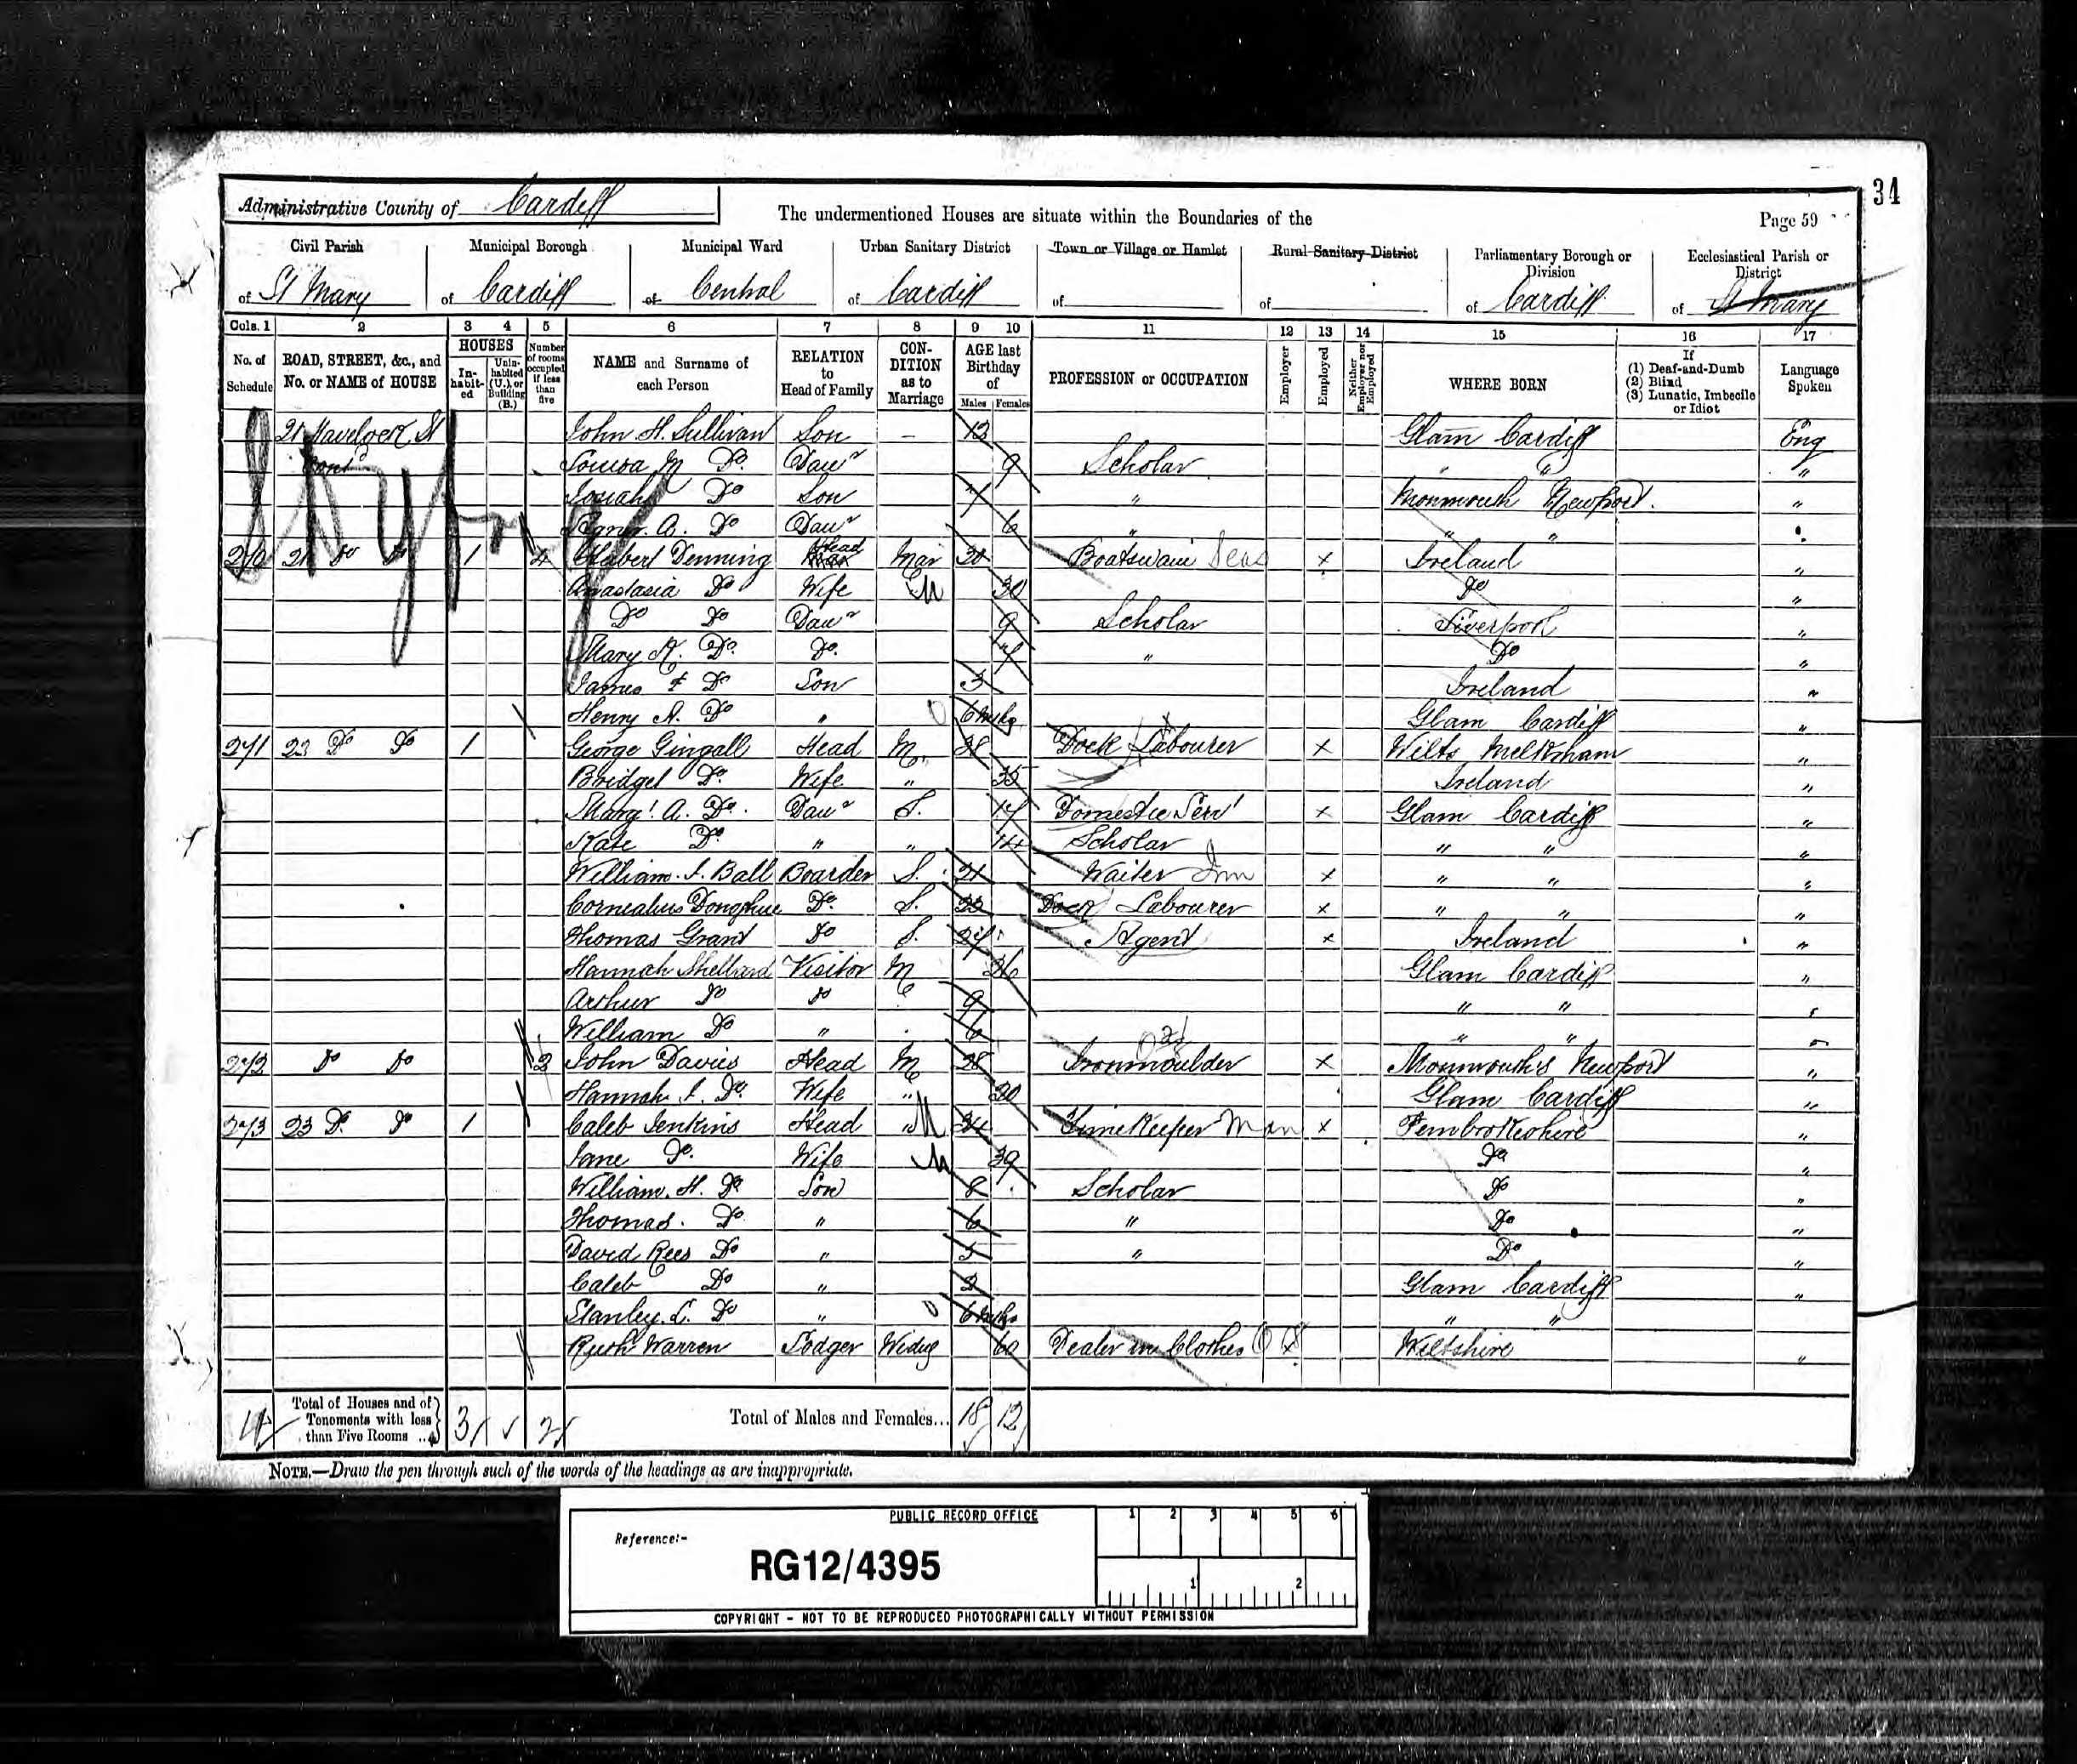 34
Administrative County of Cardiff
The undermentioned Houses are situate within the Boundaries of the
Page 59
Civil Parish of St Mary
Municipal Borough of Cardiff
Municipal Ward of Central
Urban Sanitary District of Cardiff
Town or Village or Hamlet of
Rural Sanitary District of
Parliamentary Borough or Division of Cardiff
Ecclesiastical Parish or District of St Mary
Cols. 1 2 3 4 5 6 7 8 9 10 11 12 13 14 15 16 17
No. of Schedule
ROAD, STREET, &c., and No. or NAME of HOUSE
HOUSES
In-habit-ed
Unin-habited (U.), or Building (B.)
Number of rooms occupied if less than five
NAME and Surname of each Person
RELATION to Head of Family
CON-DITION as to Marriage
AGE last Birthday of
Males Females
PROFESSION or OCCUPATION
Employer
Employed
Neither Employer nor Employed
WHERE BORN
If (1) Deaf-and-Dumb (2) Blind (3) Lunatic, Imbecile or Idiot
Language Spoken
21 Havelock St John H. Sullivan Son – 12 Glam Cardiff Eng
Cont'd Louisa M Do. Daur 9 Scholar " " "
Josiah Do Son 7 " Monmouth Newport. "
A. Do Daur 6 " " "
270 21 Do Do 1 4 Denning Head Mar 30 Boatswain Seas x Ireland "
Anastasia Do Wife M 30 Do "
Do Do Daur 9 Scholar Liverpool "
Mary A. Do. Do. 7 " Do "
James F Do Son 3 Ireland "
Henry A. Do " 6 mths Glam Cardiff "
271 22 Do Do 1 George Gingall Head M. 38 Dock Labourer x Wilts Melksham "
Bridget Do. Wife " 35 Ireland "
Margt. A. Do. Daur S. 17 Domestic Servt x Glam Cardiff "
Kate Do. " " 14 Scholar " " "
William. J. Ball Boarder S. 21 Waiter Inn x " " "
Cornealius Donophue Do. S. 22 Dock Labourer x " " "
Thomas Grant Do S. 27 Agent x Ireland "
Hannah Shellard Visitor M 26 Glam Cardiff "
Arthur Do Do 9 " " "
William Do " 6 " " "
272 Do Do 2 John Davies Head M 28 Ironmoulder x Monmouths Newport "
Hannah J. Do. Wife " 20 Glam Cardiff "
273 23 Do. Do 1 Caleb Jenkins Head M 34 Time Keeper Man x Pembrokeshire "
Jane Do. Wife M 39 Do "
William. H. Do Son 8 Scholar Do "
Thomas. Do " 6 " Do "
David Rees Do " 5 " Do "
Caleb Do " 2 Glam Cardiff "
Stanley. L. Do " 6 mths " "
Ruth Warren Lodger Widw 60 Dealer in Clothes x Wiltshire "
4 Total of Houses and of Tenements with less than Five Rooms .. 3 2 Total of Males and Females... 18 12
NOTE.—Draw the pen through such of the words of the headings as are inappropriate.
PUBLIC RECORD OFFICE
1 2 3 4 5 6
Reference:-
RG12/4395
1 2
COPYRIGHT - NOT TO BE REPRODUCED PHOTOGRAPHICALLY WITHOUT PERMISSION